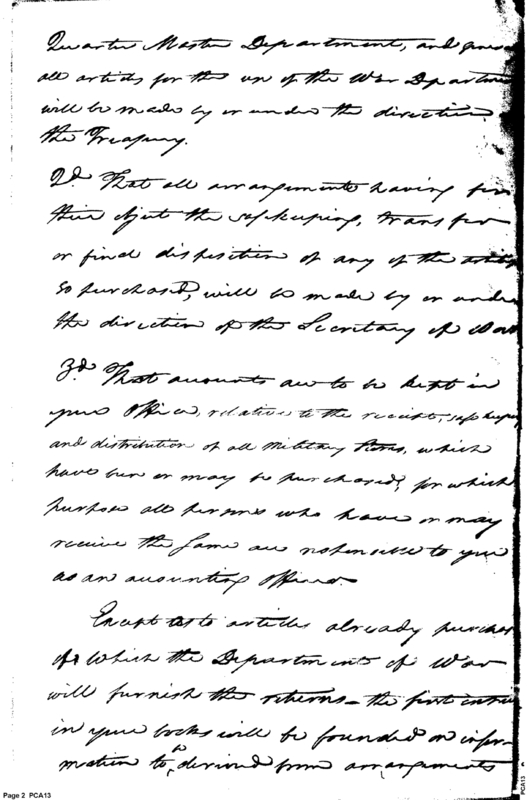 Quarter Master Department, and
all articles for the use of the War Departme
will be made by or under the direction
the Treasury.
2d. That all arrangements having for
their object the safekeeping, transfer
or final disposition of any of the
so purchased, will be made by or under
the direction of the Secretary of War
3d. That accounts are to be kept in
your Office, relative to the receipt, safe keeping
and distribution of all Military Stores, which
have been or may be purchased, for which
purpose all persons who have or may
receive the same are responsible to you
as an accounting officer.
Except as to articles already purchas
of which the Department of War
will furnish the returns - the first
in your books will be founded on infor-
mation to be derived from arrangements
Page 2 PCA13
PCA13